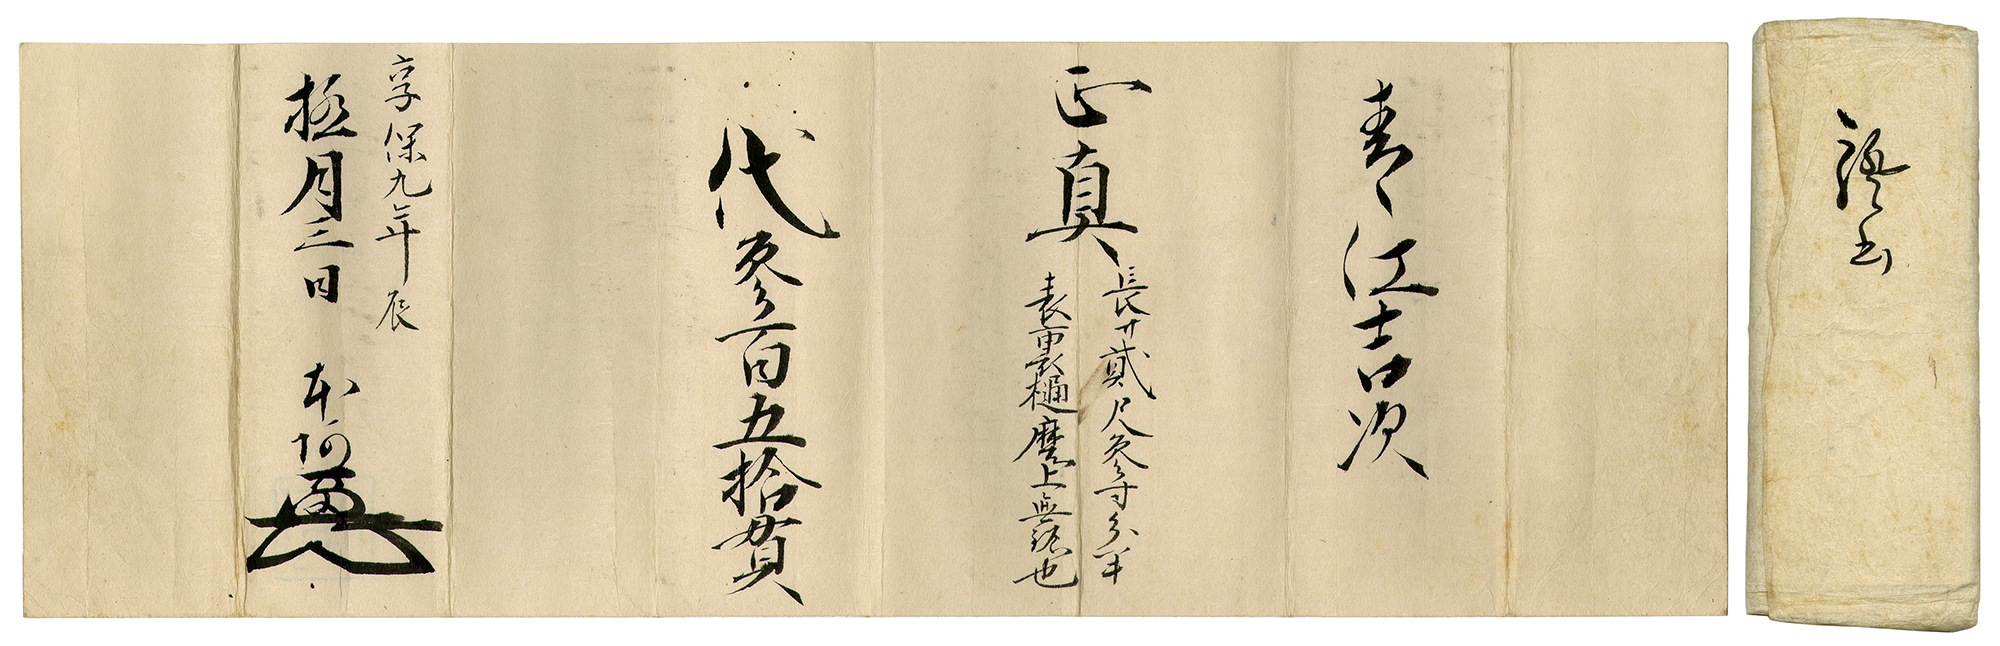 證書
青江吉次
正真
長サ貳尺参寸分半
表裏樋磨上無銘也
代参百五拾貫
享保九年辰
極月三日 本阿